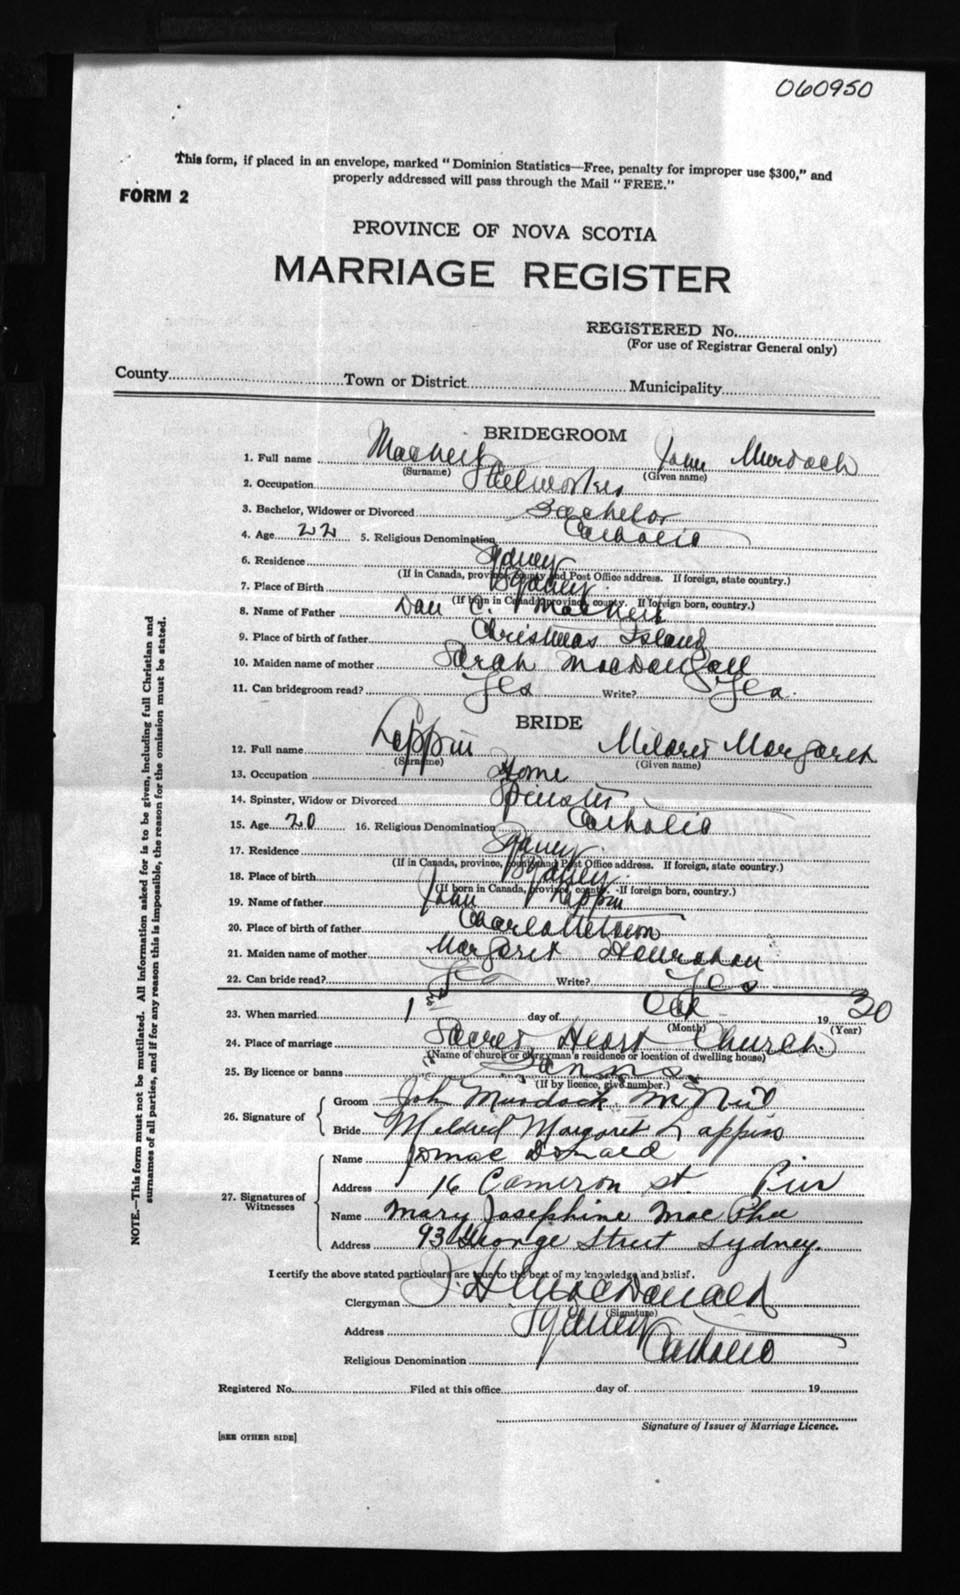 060950
This form, if placed in an envelope, marked "Dominion Statistics—Free, penalty for improper use $300," and
properly addressed will pass through the Mail "FREE."
FORM 2
PROVINCE OF NOVA SCOTIA
MARRIAGE REGISTER
REGISTERED No.
(For use of Registrar General only)
County Town or District Municipality
BRIDEGROOM
1. Full name MacNeil John Murdoch
(Surname) (Given name)
2. Occupation Steelworker
3. Bachelor, Widower or Divorced Bachelor
4. Age 22 5. Religious Denomination Catholic
6. Residence Sydney
(If in Canada, province, county and Post Office address. If foreign, state country.)
7. Place of Birth Sydney
(If born in Canada, province, county. If foreign born, country.)
8. Name of Father Dan C. MacNeil
9. Place of birth of father Christmas Island
10. Maiden name of mother Sarah MacDougall
11. Can bridegroom read? Yes Write? Yes.
BRIDE
12. Full name Lappin Mildred Margaret
(Surname) (Given name)
13. Occupation Home
14. Spinster, Widow or Divorced Spinster
15. Age 20 16. Religious Denomination Catholic
17. Residence Sydney
(If in Canada, province, county and Post Office address. If foreign, state country.)
18. Place of birth Sydney.
(If born in Canada, province, county. If foreign born, country.)
19. Name of father John Lappin
20. Place of birth of father Charlottetown
21. Maiden name of mother Margaret
22. Can bride read? Yes Write? Yes
23. When married 1st day of Oct 19 30
(Month) (Year)
24. Place of marriage Sacred Heart Church.
(Name of church or clergyman's residence or location of dwelling house)
25. By licence or banns Banns
(If by licence, give number.)
26. Signature of
Groom John Murdock McNeil
Bride Mildred Margaret Lappin
27. Signatures of Witnesses
Name MacDonald
Address 16 Cameron st. Pier
Name Mary Josephine MacPhee
Address 93 George Street Sydney.
I certify the above stated particulars are true to the best of my knowledge and belief.
Clergyman J. H. MacDonald
(Signature)
Address Sydney
Religious Denomination Catholic
Registered No. Filed at this office day of 19
Signature of Issuer of Marriage Licence.
[SEE OTHER SIDE]
NOTE.—This form must not be mutilated. All information asked for is to be given, including full Christian and
surnames of all parties, and if for any reason this is impossible, the reason for the omission must be stated.